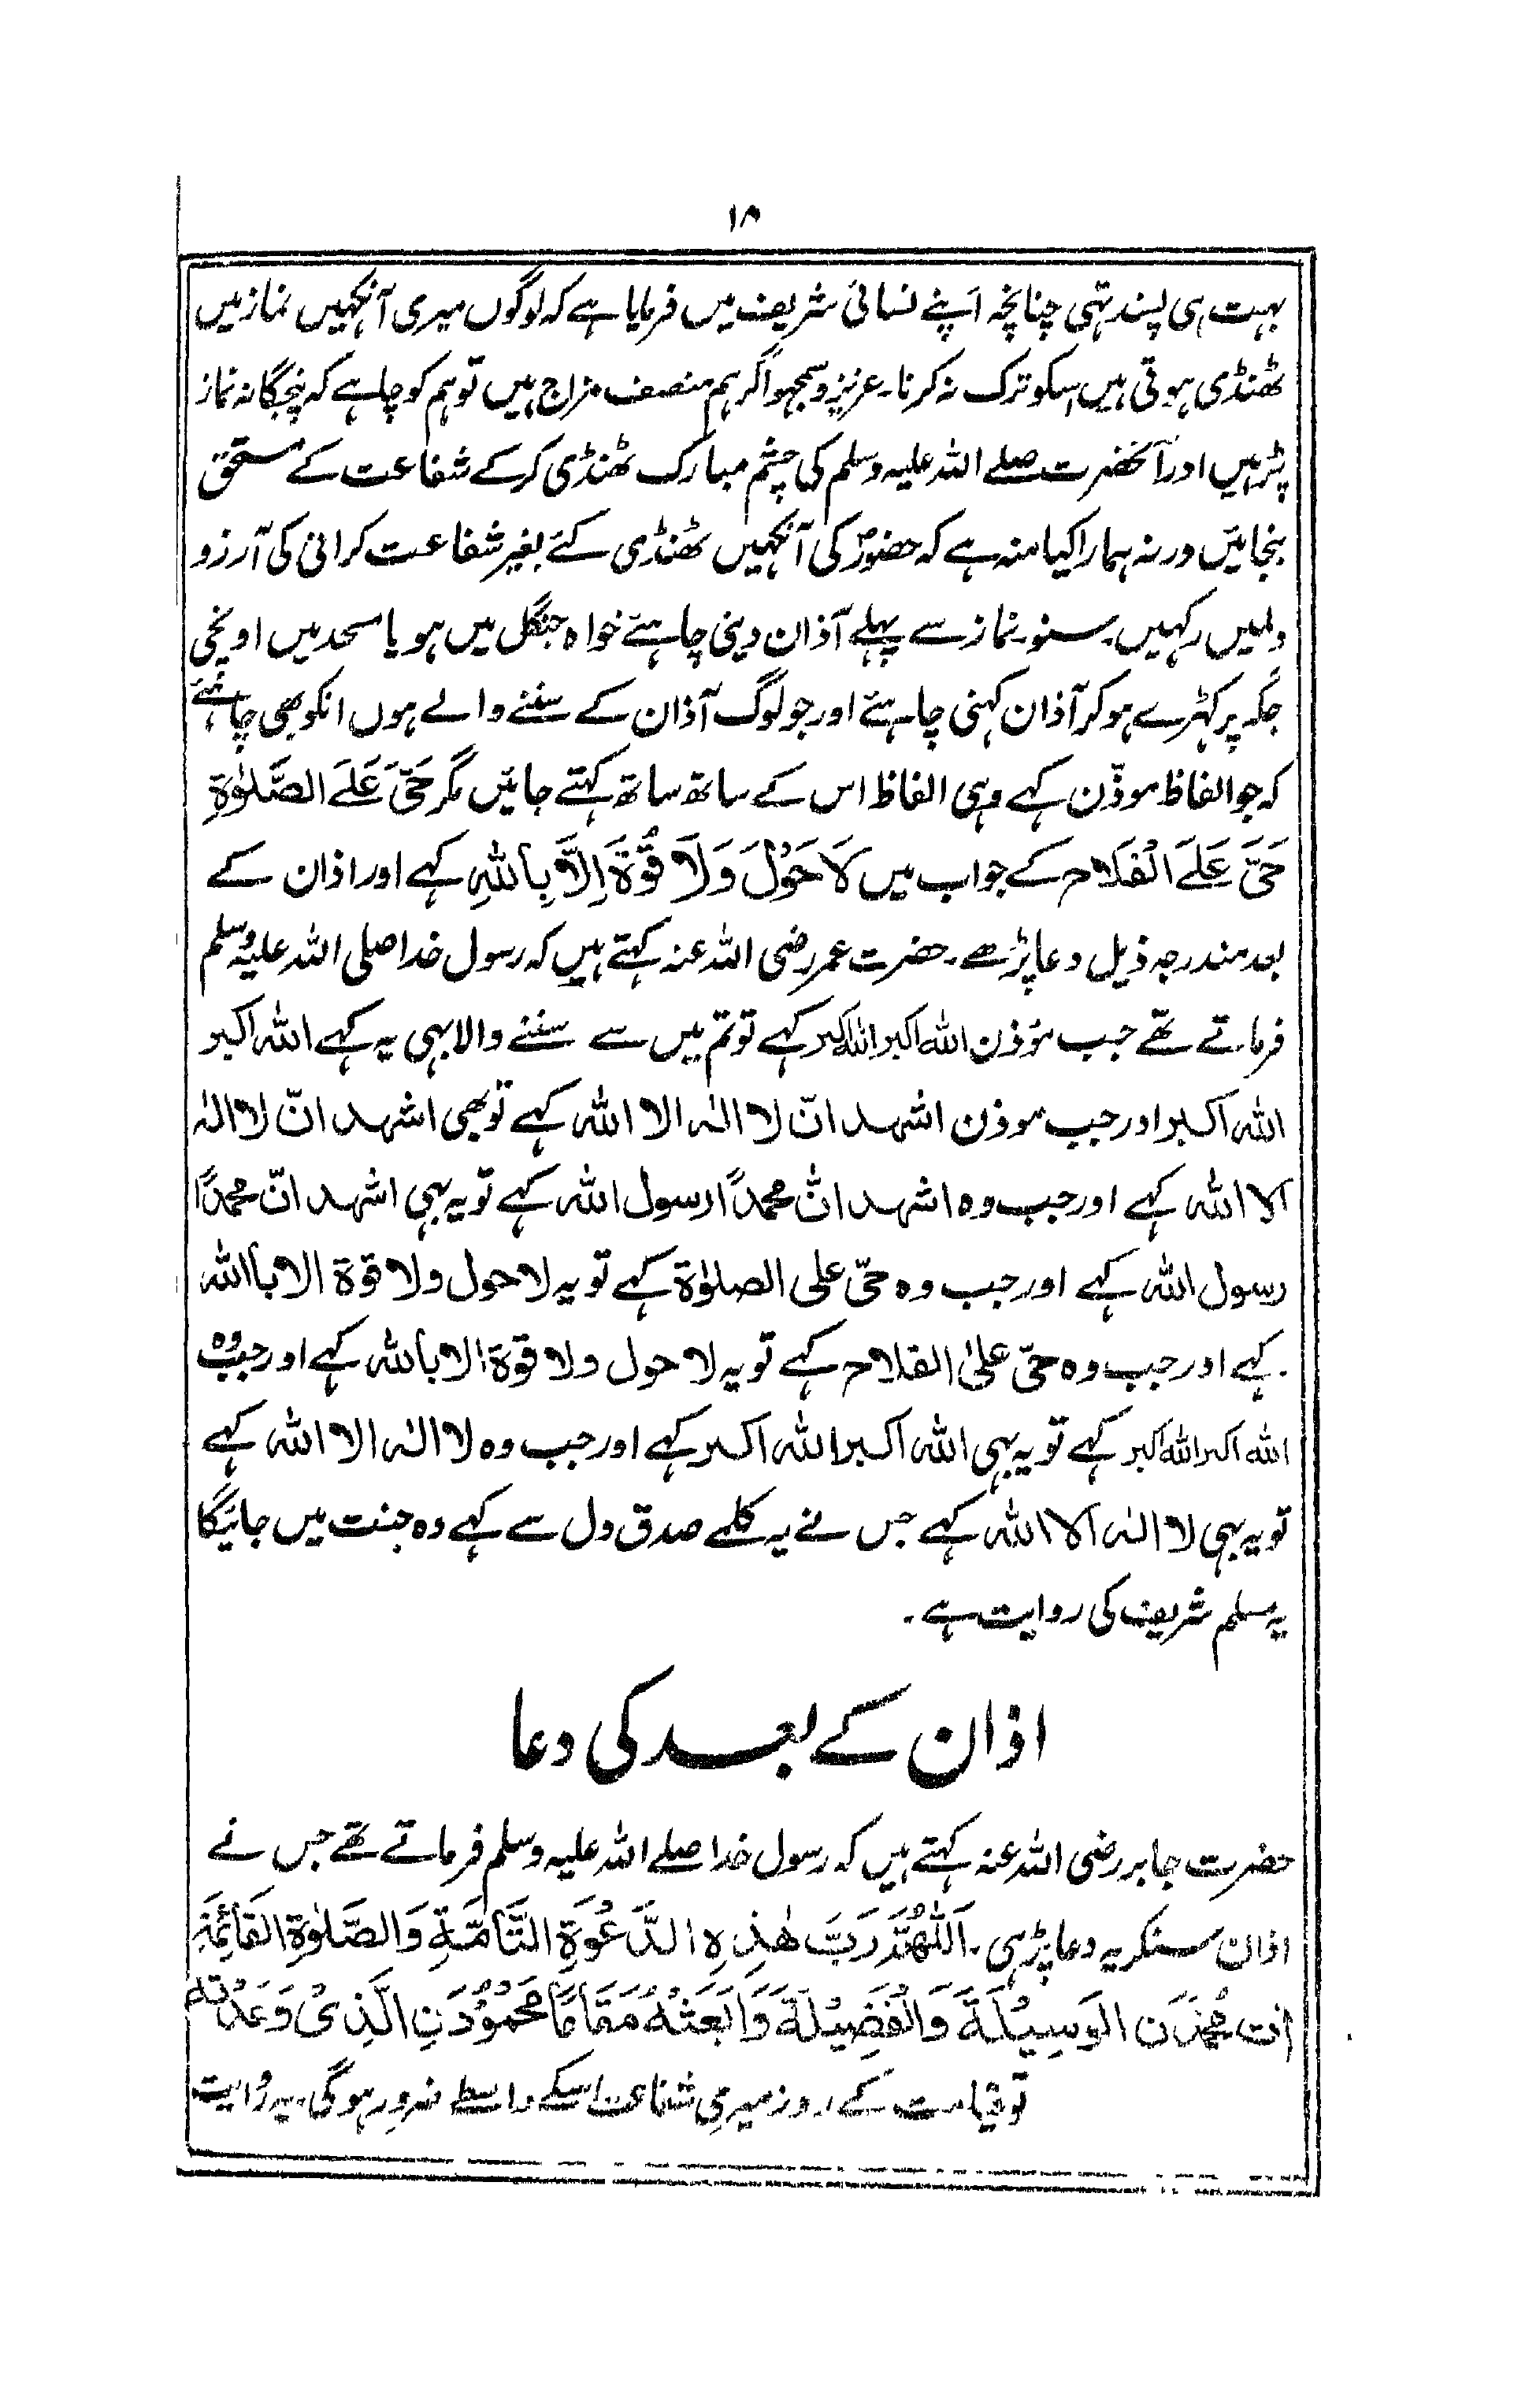 ۱۸
بہت ہی پسند تہی چنانچہ اَپنے نسائی شریف میں فرمایا ہے کہ لوگوں میری آنکہیں نماز میں
ٹھنڈی ہوتی ہیں اسکو ترک نہ کرنا۔ عزیزو سمجہو اگر ہم منصف مزاج ہیں تو ہم کو چاہے کہ پنجگانہ نماز
پڑہیں اور آنحضرت صلے اللہ علیہ وسلم کی چشم مبارک ٹھنڈی کرکے شفاعت کے مستحق
بنجائیں ورنہ ہمارا کیا منہ ہے کہ حضورؐ کی آنکہیں ٹھنڈی کئے بغیر شفاعت کرانی کی آرزو
دلمیں رکہیں۔ سنو۔ نماز سے پہلے آذان دینی چاہئے خواہ جنگل میں ہو یا مسجد میں اونچی
جگہ پر کہڑے ہو کر آذان کہنی چاہئے اور جو لوگ آذان کے سننے والے ہوں انکو بھی چاہئے
کہ جو الفاظ موذّن کہے وہی الفاظ اس کے ساتھ ساتھ کہتے جائیں مگر حَیَّ عَلَے الصَّلٰوۃِ
حَیَّ عَلَے الْفَلَاح کے جواب میں لَا حَوْلَ وَلَا قُوَّۃَ اِلَّا بِاللّٰہِ کہے اور اذان کے
بعد مندرجہ ذیل دعا پڑھے۔ حضرت عمر رضی اللہ عنہ کہتے ہیں کہ رسول خدا صلی اللہ علیہ وسلم
فرماتے تھے جب مؤذن اللہ اکبر اللہ اکبر کہے تو تم میں سے سننے والا بہی یہ کہے اللہ اکبر
اللہ اکبر اور جب موذن اشہد انّ لا الٰہ الا اللہ کہے تو بھی اشہد انّ لا الٰہ
الا اللہ کہے اور جب وہ اشہد انّ محمدًا رسول اللہ کہے تو یہ بہی اشہد انّ محمدًا
رسول اللہ کہے اور جب وہ حیّ علی الصلوٰۃ کہے تو یہ لا حول ولا قوۃ الا باللہ
کہے اور جب وہ حیّ علیٰ الفلاح کہے تو یہ لا حول ولا قوّۃ الا باللہ کہے اور جب وہ
اللہ اکبر اللہ اکبر کہے تو یہ بہی اللہ اکبر اللہ اکبر کہے اور جب وہ لا الٰہ الا اللہ کہے
تو یہ بہی لا الٰہ الا اللہ کہے جس نے یہ کلمے صدق دل سے کہے وہ جنت میں جائیگا
یہ مسلم شریف کی روایت ہے۔
اذان کے بعد کی دعا
حضرت جابر رضی اللہ عنہ کہتے ہیں کہ رسول خدا صلے اللہ علیہ وسلم فرماتے تھے جس نے
اذان سنکر یہ دعا پڑہی۔ اَللّٰہُمَّ رَبَّ ھٰذِہِ الدَّعْوَۃِ التَّامَّۃِ وَالصَّلٰوۃِ القَائِمَۃِ
اٰت مُحَمَّدَنِ الوَسِیْلَۃَ وَالْفَضِیْلَۃَ وَابَعَثْہُ مَقَامًا مَّحْمُوْدَنِ الَّذِیْ وَعَدْتَہ
تو قیامت کے روز میری شفاعت اسکے واسطے ضرور ہوگی۔ یہ روایت